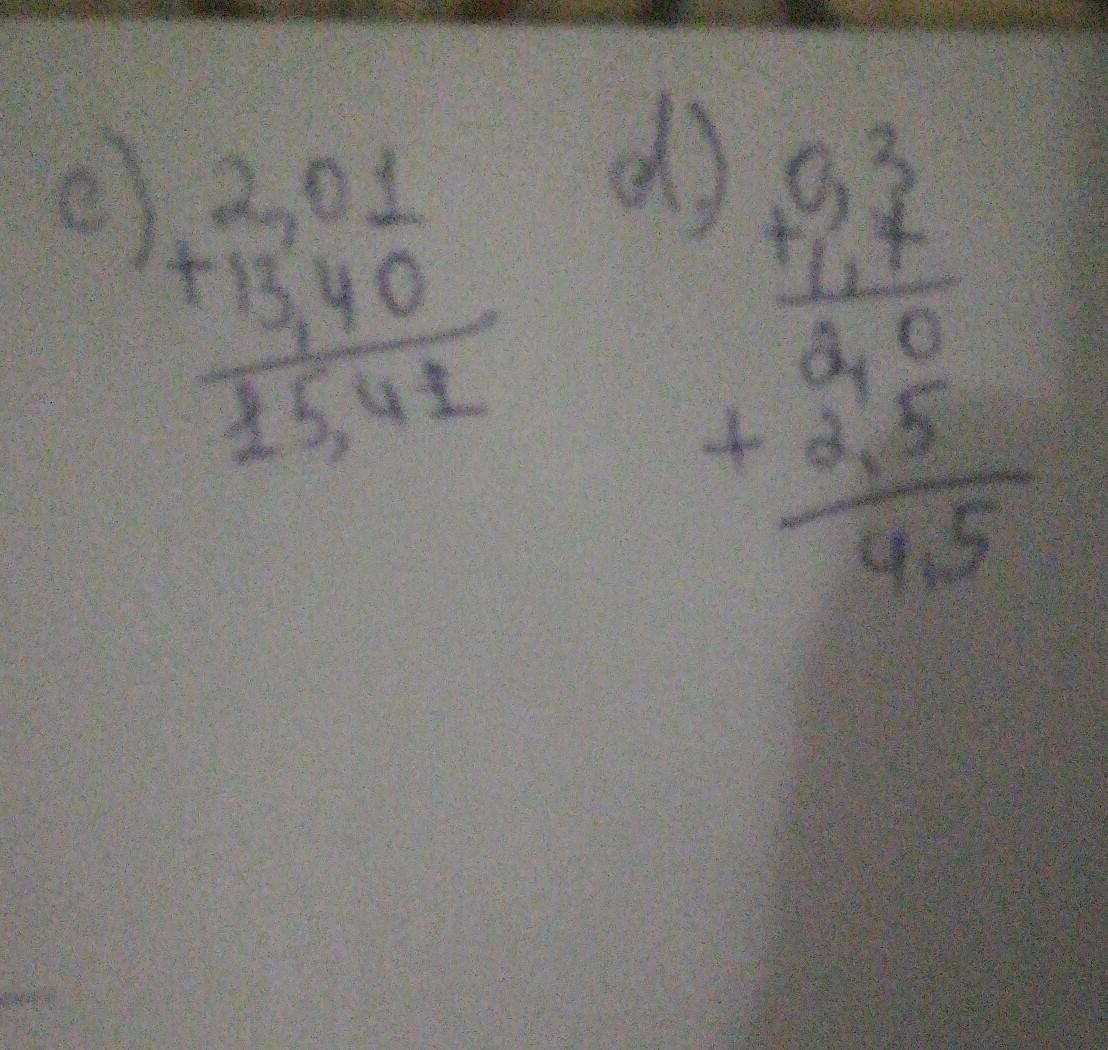 c) 2,01
+13,40
15,41
d) 0,3
+1,7
2,0
+ 2,5
4,5